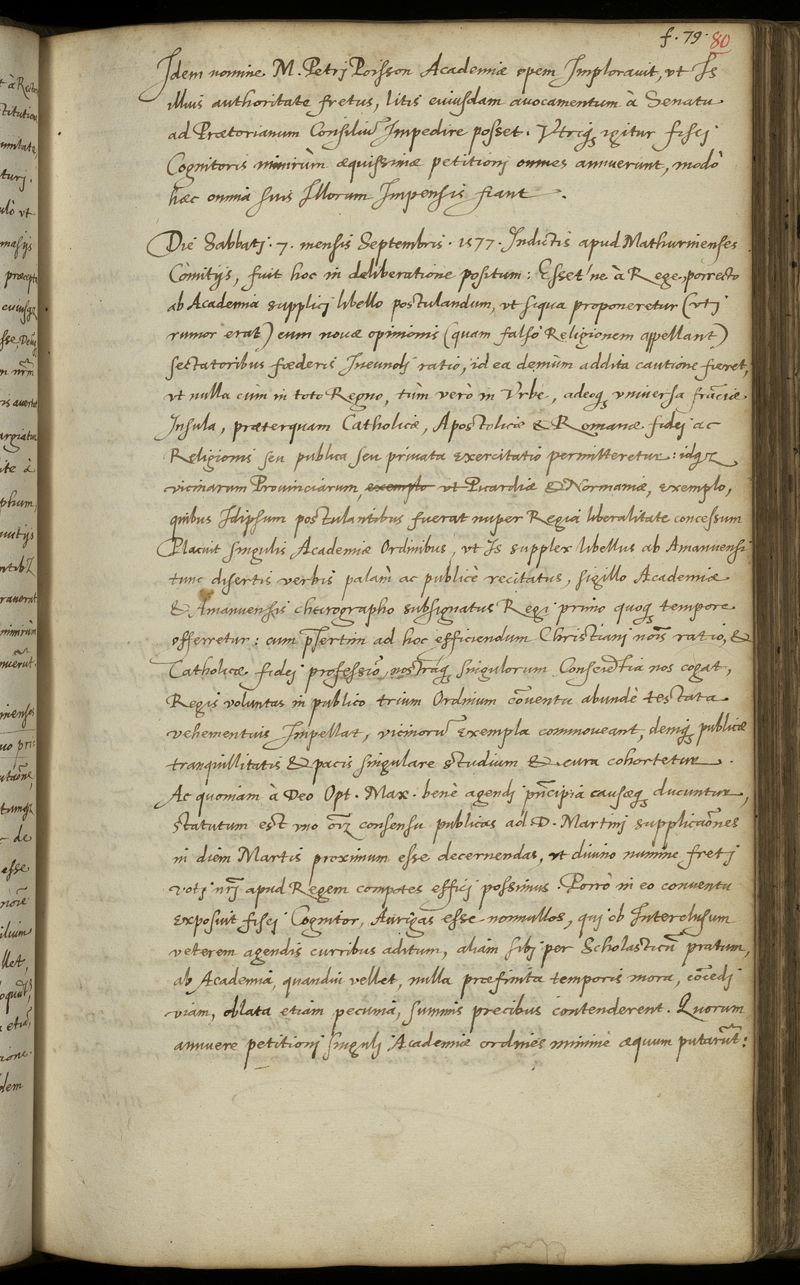 f. 79. 80
Idem nomine M. Petri Poisson Academiæ opem Implorauit, vt Is
illius authoritate fretus, litis cuiusdam auocamentum à Senatu
ad Prætorianum Consiliũ Impedire posset. Vtriq; igitur fisci
Cognitoris nimirùm æquissimæ petitioni omnes annuerunt, modò
hæc omnia suis Illorum Impensis fiant.
Die Sabbati. 7. mensis Septembris. 1577. Indictis apud Mathurinenses
Comitijs, fuit hoc in deliberatione positum: Esset ne à Rege, porrecto
ab Academia supplici libello postulandum, vt siqua proponeretur (vti
rumor erat) cum nouæ opinionis (quam falsò Religionem appellant)
sectatoribus fœderis Ineundi ratio, id ea demùm addita cautione fieret,
vt nulla cùm in toto Regno, tùm verò in Vrbe, adeoq; vniuersa franciæ
Insula, præterquam Catholicæ, Apostolicæ & Romanæ fidei ac
Religionis seu publica seu priuata exercitatio permitteretur: idq;
vicinarum Prouinciarum, exemplo vt Picardiæ & Normaniæ, exemplo,
quibus Idipsum postulantibus fuerat nuper Regia liberalitate concessum
Placuit singulis Academiæ Ordinibus, vt Is supplex libellus ab Amanuensi
tunc disertis verbis palàm ac publicè recitatus, sigillo Academiæ
& Amanuensis chirographo subsignatus Regi primo quoq; tempore
offerretur: cum p̃sertim ad hoc efficiendum Christiani nõis ratio, &
Catholicæ fidei professio, nostràq; singulorum Conscientia nos cogat,
Regis voluntas in publico trium Ordinum cõuentu abundè testata
vehementius Impellat, vicinorũ exempla commoueant, deniq; publicæ
tranquillitatis & pacis singulare studium & cura cohortetur.
Ac quoniam à Deo Opt. Max. benè agendi prĩcipia causæq; ducuntur,
statutum est vno oĩũ consensu publicas ad D. Martini supplicãones
in diem Martis proximum esse decernendas, vt diuino numine freti
voti nr̃i apud Regem compotes effici possimus. Porrò in eo conuentu
exposuit fisci Cognitor, Aurigas esse nonnullos, qui ob Interclusum
veterem agendis curribus aditum, aliam sibi per Scholasticũ pratum,
ab Academia, quandiu vellet, nulla præfinita temporis mora, cõcedi
viam, oblata etiam pecunia, summis precibus contenderent. Quorum
annuere petitioni singuli Academiæ ordines minimè æquum putarũt: